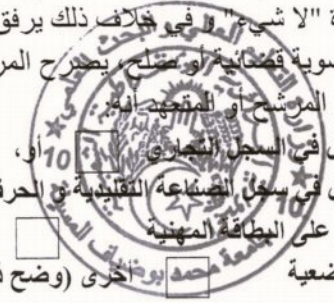 "لا شيء" و في خلاف ذلك يرفق
سوية قضائية أو صلح، يصرح المر
المرشح أو المتعهد أنه:
في السجل التجاري أو،
في سجل الصناعة التقليدية و الحرف
على البطاقة المهنية
ضعية أخرى (وضح
10 10
جامعة محمد بوضياف المسيلة